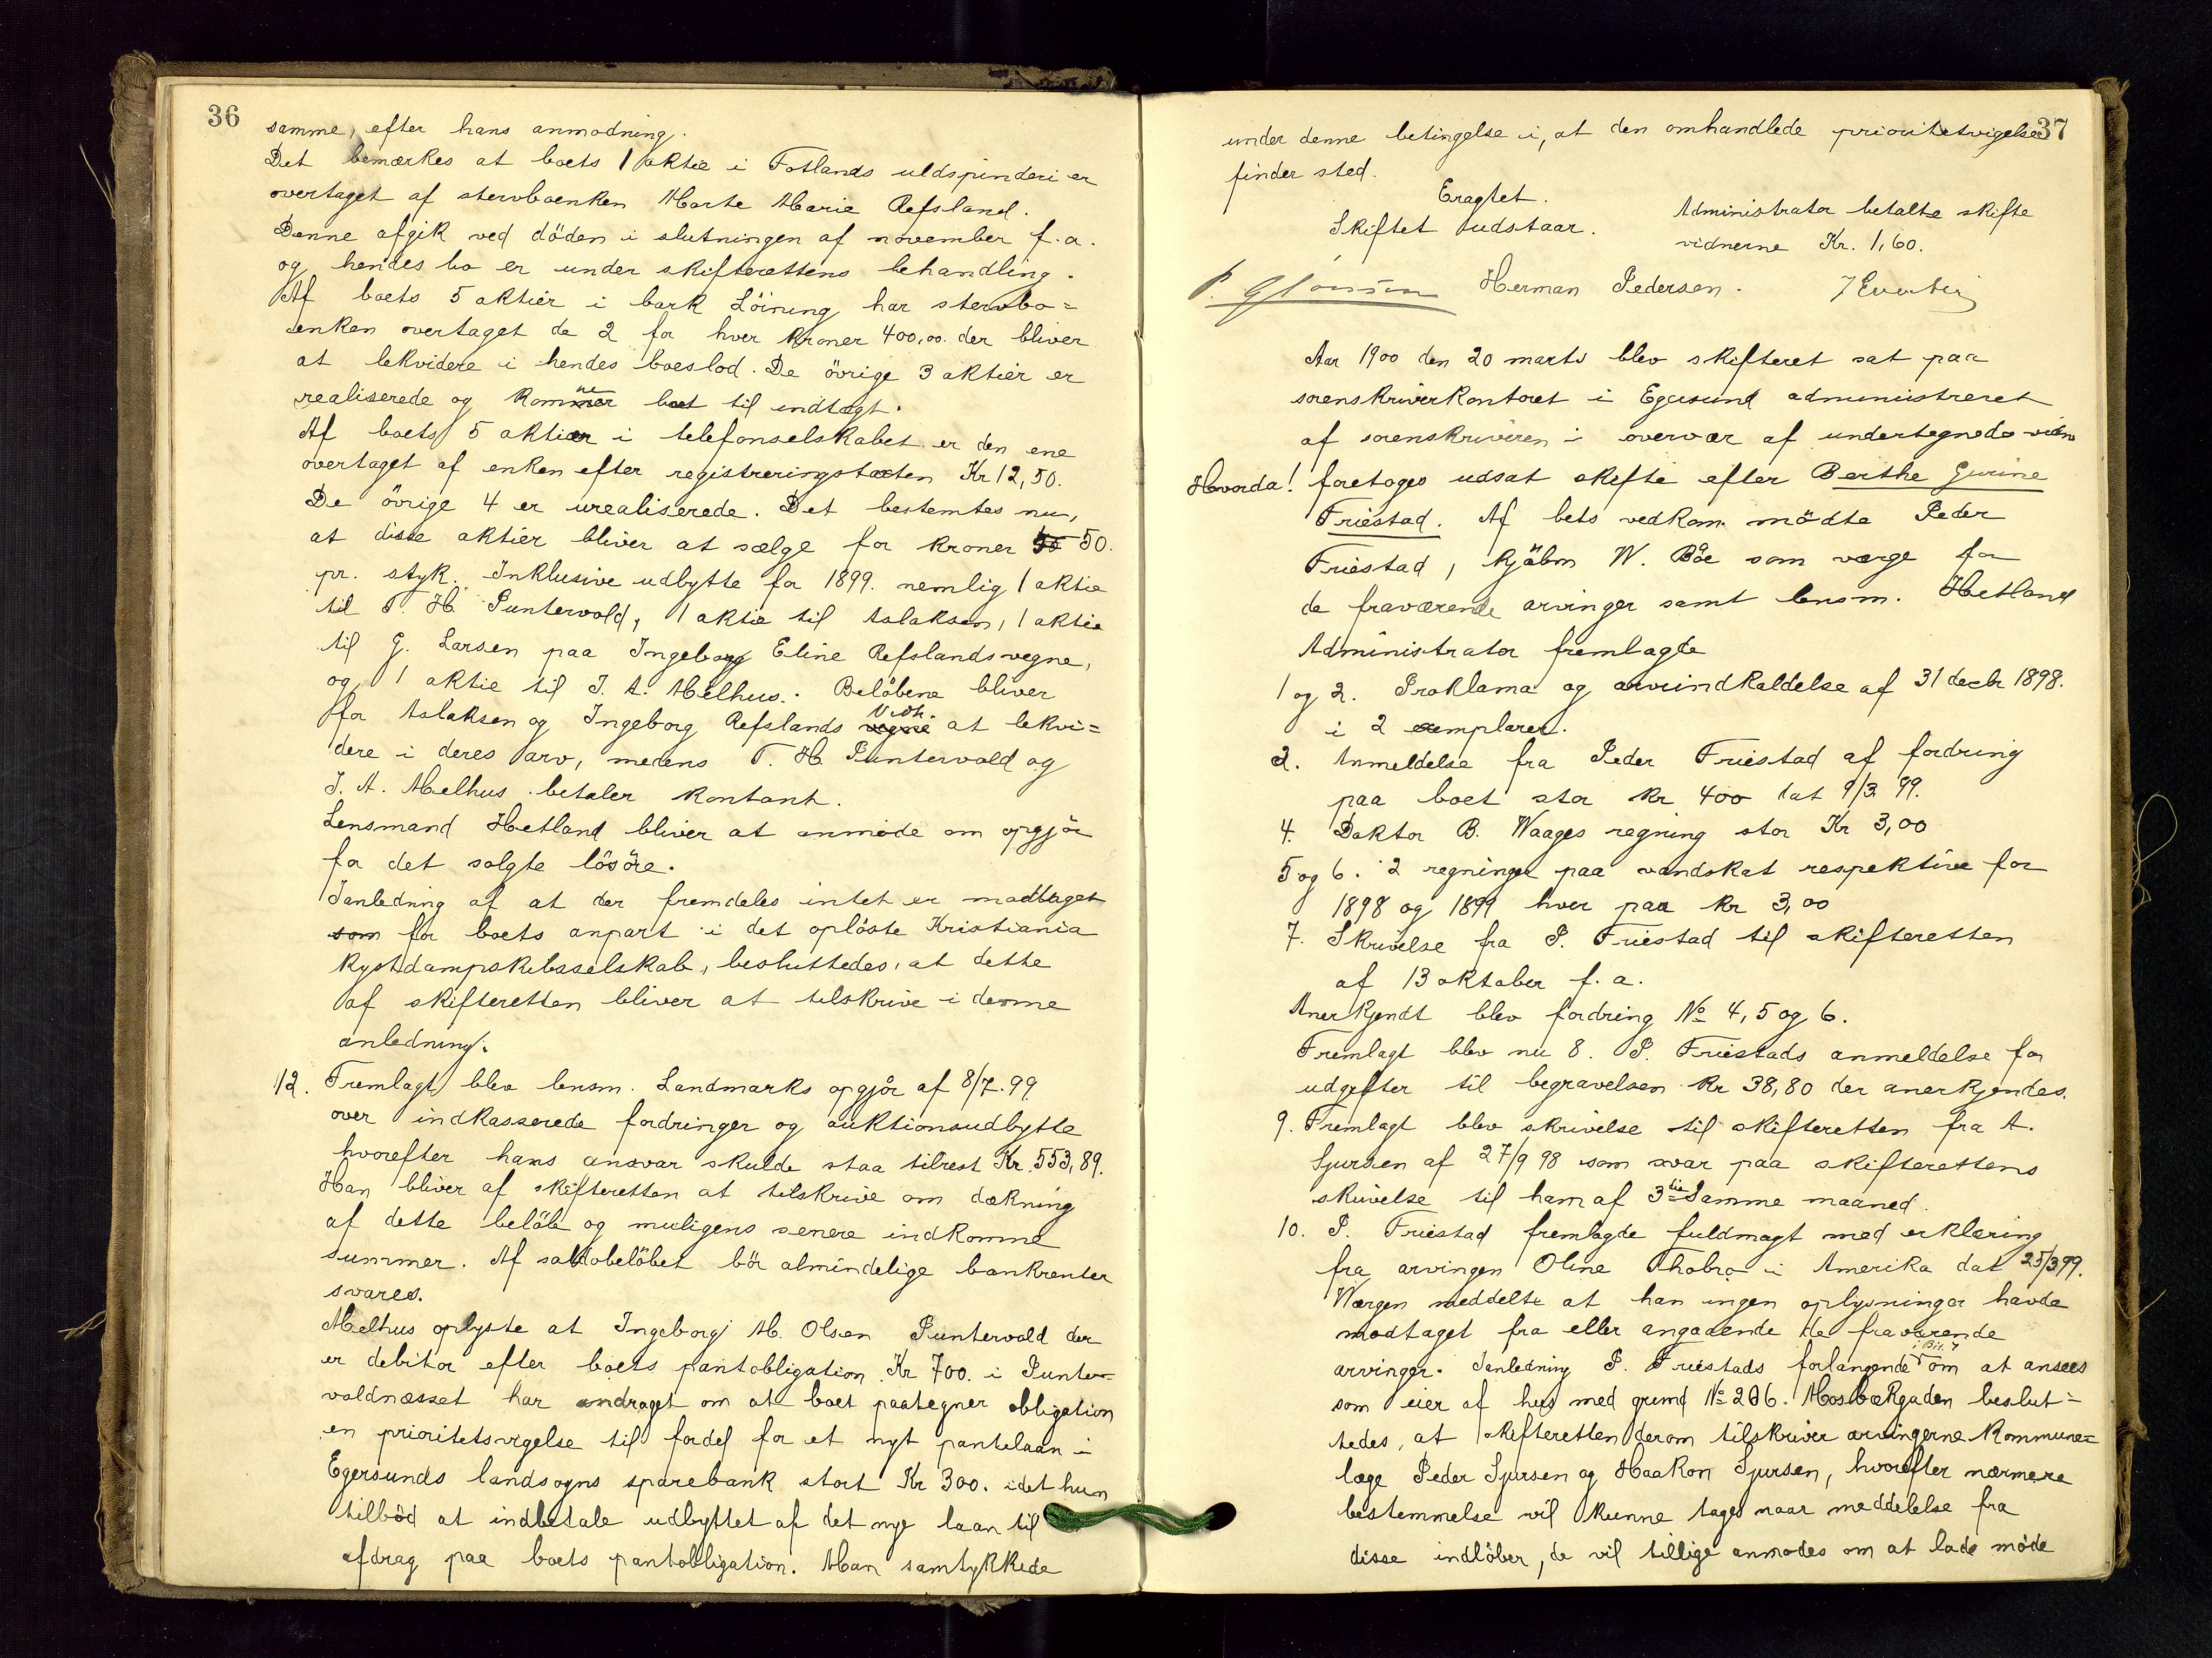 36
samme, efter hans anmodning.
Det bemærkes at boets 1 aktie i Fotlands uldspinderi er
overtaget af stervboenken Marte Marie Refsland.
Denne afgik ved döden i slutningen af november f.a.
og hendes bo er under skifterettens behandling.
Af boets 5 aktier i bark Löining har stervbo=
enken overtaget de 2 for hver Kroner 400,00. der bliver
at lekvidere i hendes boeslod. De övrige 3 aktier er
realiserede og kommer boet til indtægt.
Af boets 5 aktier i telefonselskabet er den ene
overtaget af enken efter registreringstaxten Kr 12,50.
De övrige 4 er urealiserede. Det bestemtes nu,
at disse aktier bliver at sælge for kroner 50.
pr. styk. Inklusive udbytte for 1899. nemlig 1 aktie
til T. H. Puntervold, 1 aktie til Aslaksen, 1 aktie
til G. Larsen paa Ingeborg Eline Refslands vegne,
og 1 aktie til J. A. Melhus. Belöbene bliver
for Aslaksen og Ingeborg Refslands vegne Vedk. at lekvi=
dere i deres arv, medens T. H. Puntervold og
J. A. Melhus betaler kontant.
Lensmand Hetland bliver at anmode om opgjör
for det solgte lösöre.
Ianledning af at der fremdeles intet er modtaget
som for boets anpart i det oplöste Kristiania
Kystdampskibsselskab, besluttedes, at dette
af skifteretten bliver at tilskrive i denne
anledning.
12. Fremlagt blev lensm. Landmarks opgjör af 8/7. 99
over indkasserede fordringer og auktionsudbytte
hvorefter hans ansvar skulde staa tilrest Kr. 553,89.
Han bliver af skifteretten at tilskrive om dækning
af dette belöb og muligens senere indkomne
summer. Af saldobelöbet bör almindelige bankrenter
svares.
Melhus oplyste at Ingeborg M. Olsen Puntervold der
er debitor efter boets pantobligation Kr 700. i Punter=
voldnæsset har andraget om at boet paategner obligation
en prioritetsvigelse til fordel for et nyt pantelaan i
Egersunds landsogns sparebank stort Kr 300. idet hun
tilböd at indbetale udbyttet af det nye laan til
afdrag paa boets pantobligation. Man samtykkede
37
under denne betingelse i, at den omhandlede prioritetsvigelse
finder sted.
Eragtet.
Skiftet udstaar.
Administrator betalte skifte
vidnerne Kr. 1,60.
Herman Pedersen.
Aar 1900 den 20 marts blev skifteret sat paa
sorenskriverkontoret i Egersund administreret
af sorenskriveren i overvær af undertegnede vidn
Hvorda! foretoges udsat skifte efter Berthe Gurine
Friestad. Af bets vedkom mödte Peder
Friestad, kjöbm W. Böe som værge for
de fraværende arvinger samt lensm. Hetland
Administrator fremlagde
1 og 2. Proklama og arveindkaldelse af 31 decbr 1898.
i 2 exemplarer.
3. Anmeldelse fra Peder Friestad af fordring
paa boet stor kr 400 dat 9/3 99.
4. Doktor B. Waages regning stor Kr 3,00
5 og 6. 2 regninger paa vandskat respektive for
1898 og 1899 hver paa Kr 3,00
7. Skrivelse fra P. Friestad til skifteretten
af 13 oktober f. a.
Anerkjendt blev fordring No 4, 5 og 6.
Fremlagt blev nu 8. P. Friestads anmeldelse for
udgifter til begravelsen kr 38,80 der anerkjendes.
9. Fremlagt blev skrivelse til skifteretten fra A.
Sjursen af 27/9 98 som svar paa skifterettens
skrivelse til ham af 3die Samme maaned.
10. P. Friestad fremlagde fuldmagt med erklæring
fra arvingen Oline Thobro i Amerika dat 25/3 99.
Værgen meddelte at han ingen oplysninger havde
modtaget fra eller angaaende de fraværende
arvinger. Ianledning P. Friestads forlangende om at ansees
som eier af hus med grund No 206. Mosbækgaden beslut=
tedes, at skifteretten derom tilskriver arvingerne Kommune=
læge Peder Sjursen og Haakon Sjursen, hvorefter nærmere
bestemmelse vil kunne tages naar meddelelse fra
disse indlöber, de vil tillige anmodes om at lade möde